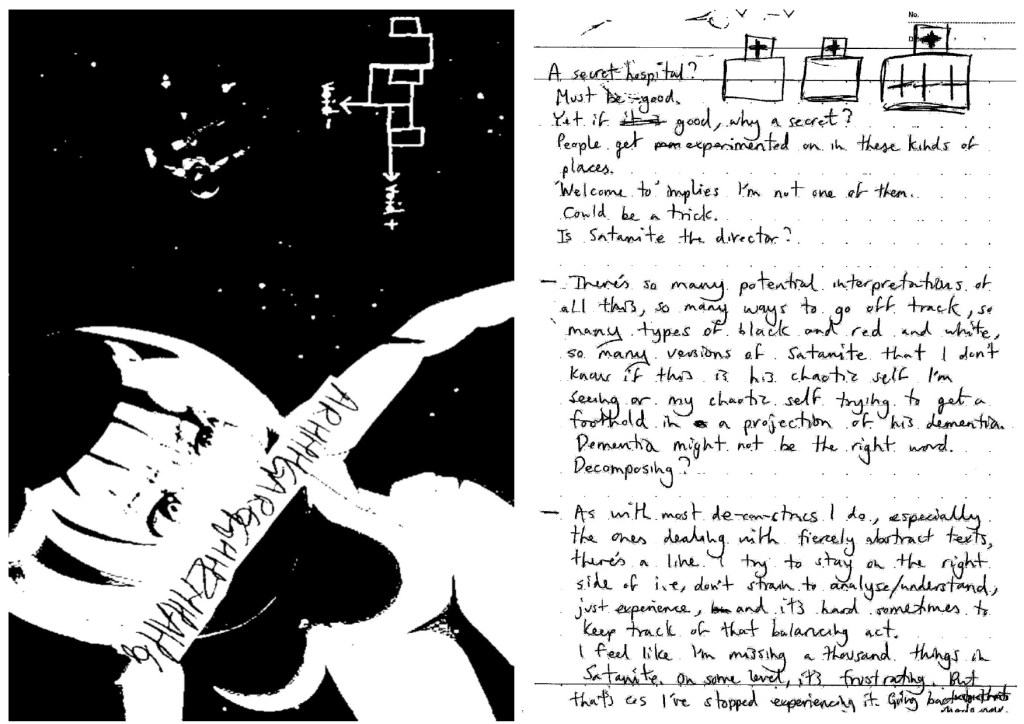 Void -
Void +
ARHHHGARGGHHRZHHAHHG
No.
A secret hospital?
Must be good.
Yet if good, why a secret?
People get experimented on in these kinds of
places.
'Welcome to' implies I'm not one of them.
Could be a trick.
Is Satanite the director?
— There's so many potential interpretations of
all this, so many ways to go off track, so
many types of black and red and white,
so many versions of Satanite that I don't
know if this is his chaotic self I'm
seeing or my chaotic self trying to get a
foothold in a projection of his dementia.
Dementia might not be the right word.
Decomposing?
— As with most de-con-strucs I do, especially
the ones dealing with fiercely abstract texts,
there's a line I try to stay on the right
side of i.e, don't strain to analyse/understand,
just experience, and it's hard sometimes to
keep track of that balancing act.
I feel like I'm missing a thousand things in
Satanite. On some level, it's frustrating. But
that's cos I've stopped experiencing it. Going back